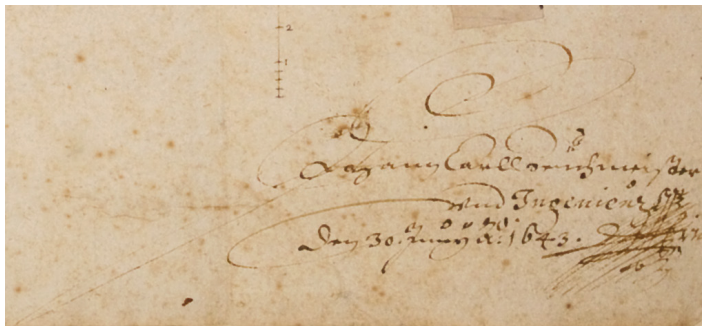 2
1
Johann Carll Zeüchmeister
vnd Ingenieür
den 30. Juny A: 1643.